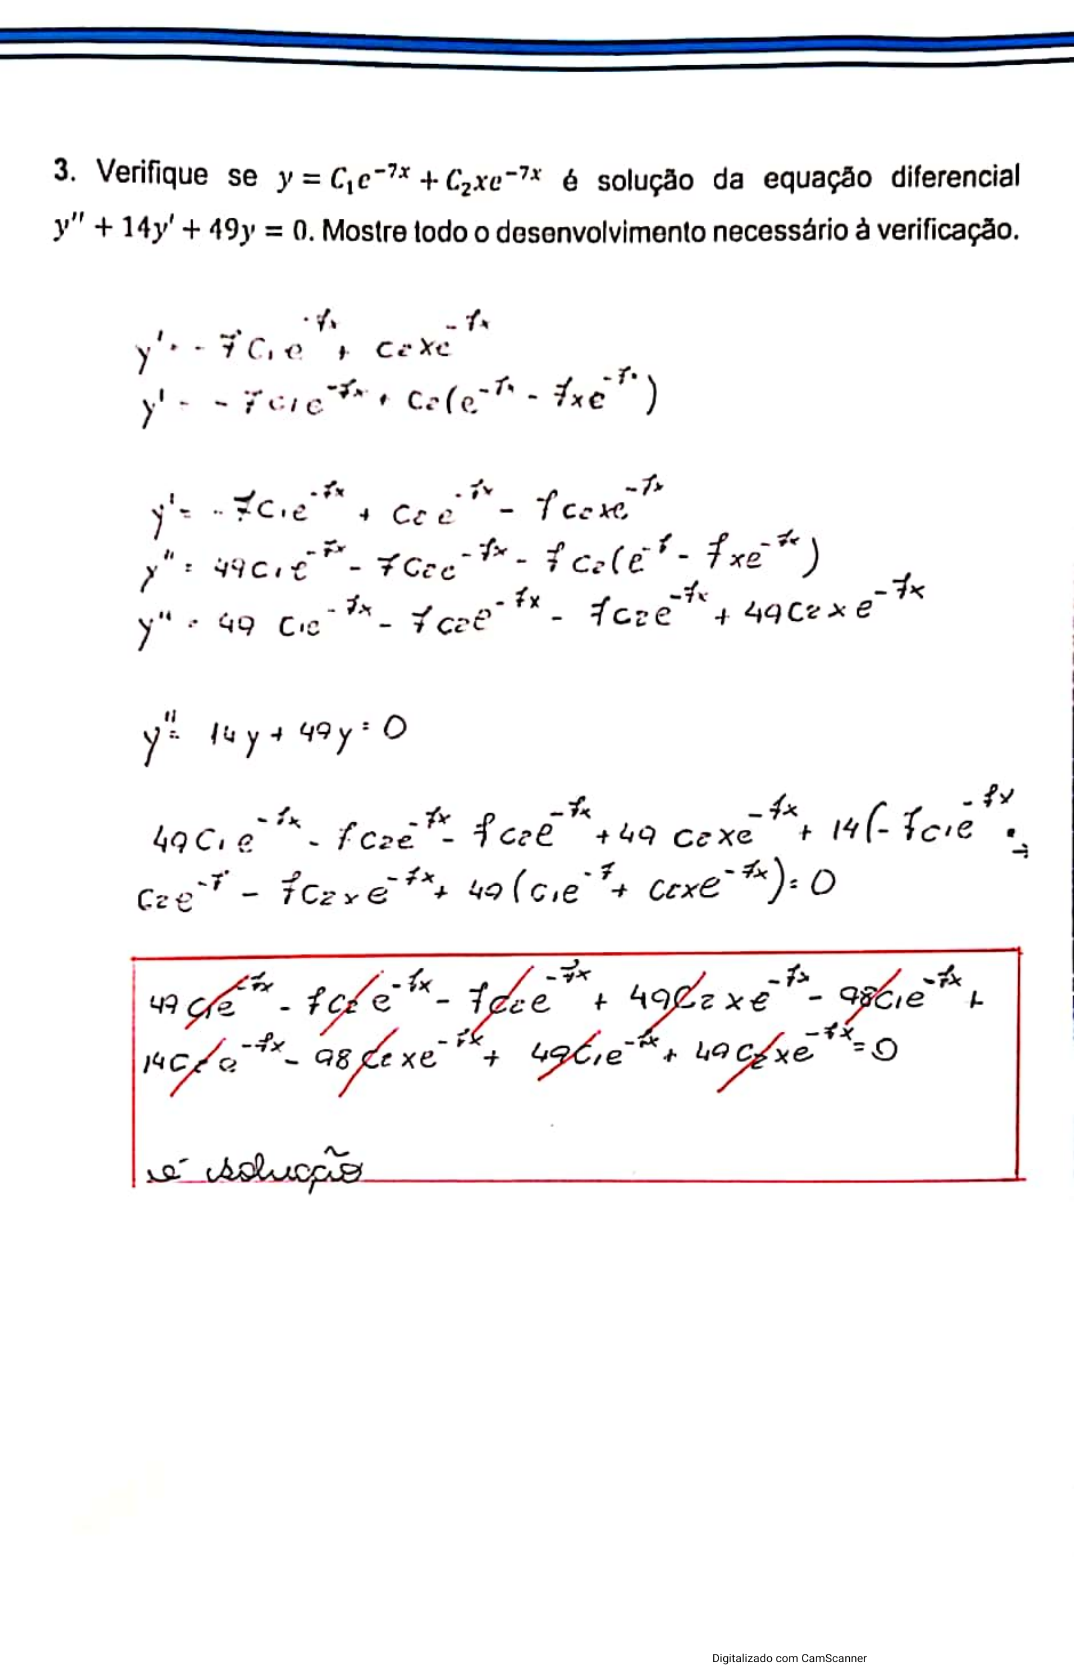 3. Verifique se y = C₁e⁻⁷ˣ + C₂xe⁻⁷ˣ é solução da equação diferencial
y'' + 14y' + 49y = 0. Mostre todo o desenvolvimento necessário à verificação.
y' = -7C₁e⁻⁷ˣ + C₂xe⁻⁷ˣ
y' = -7C₁e⁻⁷ˣ + C₂(e⁻⁷ˣ - 7xe⁻⁷ˣ)
y' = -7C₁e⁻⁷ˣ + C₂e⁻⁷ˣ - 7C₂xe⁻⁷ˣ
y'' = 49C₁e⁻⁷ˣ - 7C₂e⁻⁷ˣ - 7C₂(e⁻⁷ - 7xe⁻⁷ˣ)
y'' = 49C₁e⁻⁷ˣ - 7C₂e⁻⁷ˣ - 7C₂e⁻⁷ˣ + 49C₂xe⁻⁷ˣ
y'' = 14y + 49y = 0
49C₁e⁻⁷ˣ - 7C₂e⁻⁷ˣ - 7C₂e⁻⁷ˣ + 49C₂xe⁻⁷ˣ + 14(-7C₁e⁻⁷ˣ + →
C₂e⁻⁷ - 7C₂xe⁻⁷ˣ + 49(C₁e⁻⁷ + C₂xe⁻⁷ˣ) = 0
49C₁e⁻⁷ˣ - 7C₂e⁻⁷ˣ - 7C₂e⁻⁷ˣ + 49C₂xe⁻⁷ˣ - 98C₁e⁻⁷ˣ +
14C₂e⁻⁷ˣ - 98C₂xe⁻⁷ˣ + 49C₁e⁻⁷ˣ + 49C₂xe⁻⁷ˣ = 0
é solução
Digitalizado com CamScanner